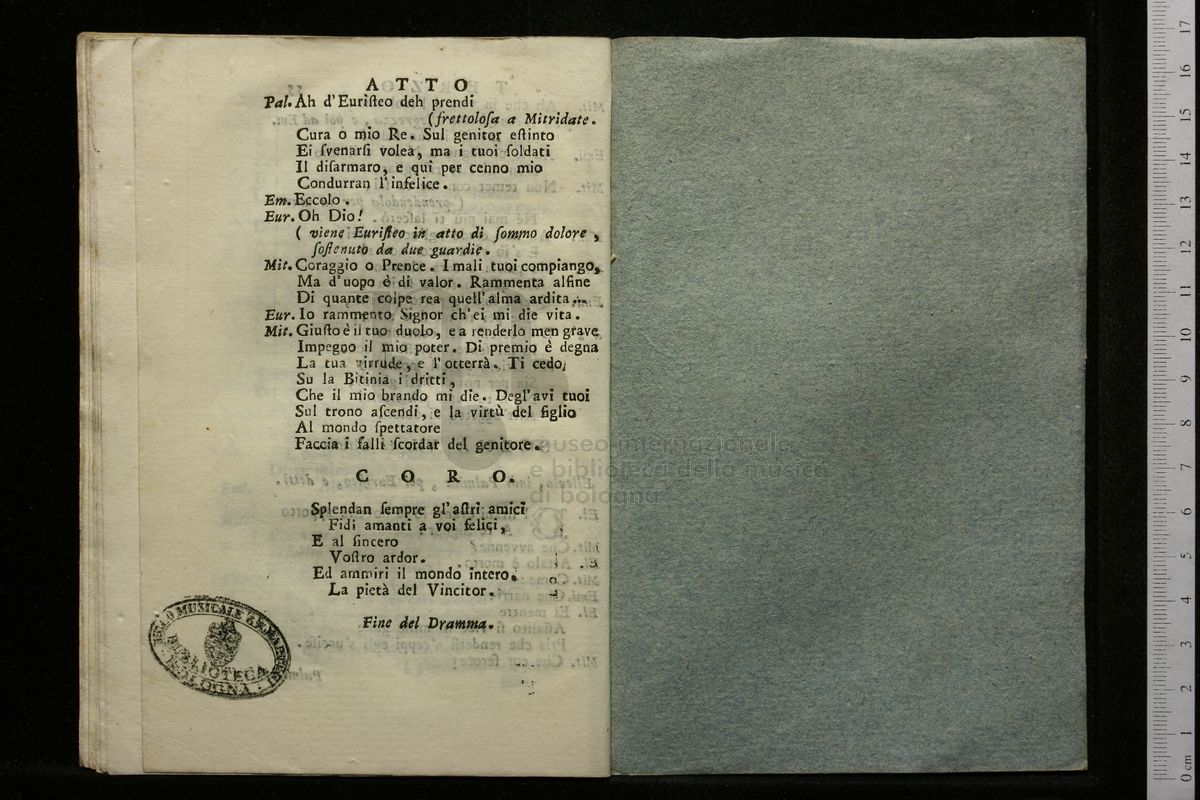 ATTO
Pal. Ah d'Euriſteo deh prendi
(frettoloſa a Mitridate.
Cura o mio Re. Sul genitor eſtinto
Ei ſvenarſi volea, ma i tuoi ſoldati
Il diſarmaro, e qui per cenno mio
Condurran l'infelice.
Em. Eccolo.
Eur. Oh Dio!
( viene Euriſteo in atto di ſommo dolore,
ſoſtenuto da due guardie.
Mit. Coraggio o Prence. I mali tuoi compiango,
Ma d'uopo è di valor. Rammenta alfine
Di quante colpe rea quell'alma ardita...
Eur. Io rammento Signor ch'ei mi die vita.
Mit. Giuſto è il tuo duolo, e a renderlo men grave
Impegno il mio poter. Di premio è degna
La tua virtude, e l'otterrà. Ti cedo
Su la Bitinia i dritti,
Che il mio brando mi die. Degl'avi tuoi
Sul trono aſcendi, e la virtù del figlio
Al mondo ſpettatore
Faccia i falli ſcordar del genitore.
CORO.
Splendan ſempre gl'aſtri amici
Fidi amanti a voi felici,
E al ſincero
Voſtro ardor.
Ed ammiri il mondo intero
La pietà del Vincitor.
Fine del Dramma.
BIBLIOTECA
BOLOGNA
museo internazionale
e biblioteca della musica
di bologna
0 cm 1 2 3 4 5 6 7 8 9 10 11 12 13 14 15 16 17